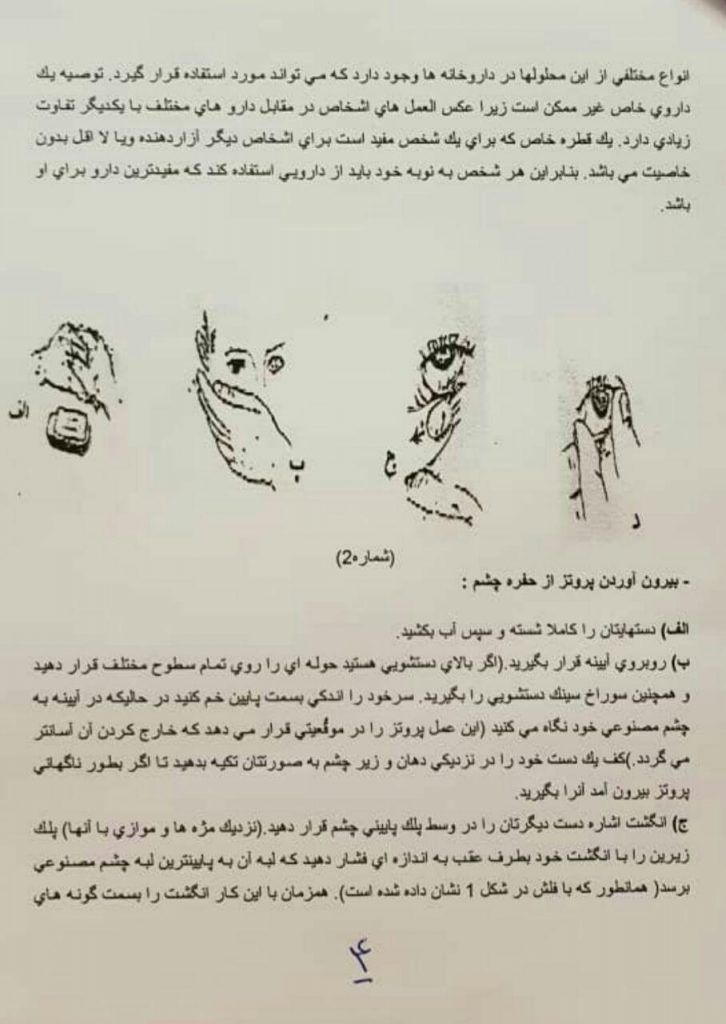 انواع مختلفي از اين محلولها در داروخانه ها وجود دارد كه مي تواند مورد استفاده قرار گيرد. توصيه يك
داروي خاص غير ممكن است زيرا عكس العمل هاي اشخاص در مقابل دارو هاي مختلف با يكديگر تفاوت
زيادي دارد. يك قطره خاص كه براي يك شخص مفيد است براي اشخاص ديگر آزاردهنده ويا لا اقل بدون
خاصيت مي باشد. بنابراين هر شخص به نوبه خود بايد از دارويي استفاده كند كه مفيدترين دارو براي او
باشد.
الف
ب
ج
د
(شماره2)
- بيرون آوردن پروتز از حفره چشم :
الف) دستهايتان را كاملا شسته و سپس آب بكشيد.
ب) روبروي آيينه قرار بگيريد.(اگر بالاي دستشويي هستيد حوله اي را روي تمام سطوح مختلف قرار دهيد
و همچنين سوراخ سينك دستشويي را بگيريد. سرخود را اندكي بسمت پايين خم كنيد در حاليكه در آيينه به
چشم مصنوعي خود نگاه مي كنيد (اين عمل پروتز را در موقُعيتي قرار مي دهد كه خارج كردن آن آسانتر
مي گردد.)كف يك دست خود را در نزديكي دهان و زير چشم به صورتتان تكيه بدهيد تا اگر بطور ناگهاني
پروتز بيرون آمد آنرا بگيريد.
ج) انگشت اشاره دست ديگرتان را در وسط پلك پاييني چشم قرار دهيد.(نزديك مژه ها و موازي با آنها) پلك
زيرين را با انگشت خود بطرف عقب به اندازه اي فشار دهيد كه لبه آن به پايينترين لبه چشم مصنوعي
برسد( همانطور كه با فلش در شكل 1 نشان داده شده است). همزمان با اين كار انگشت را بسمت گونه هاي
۴